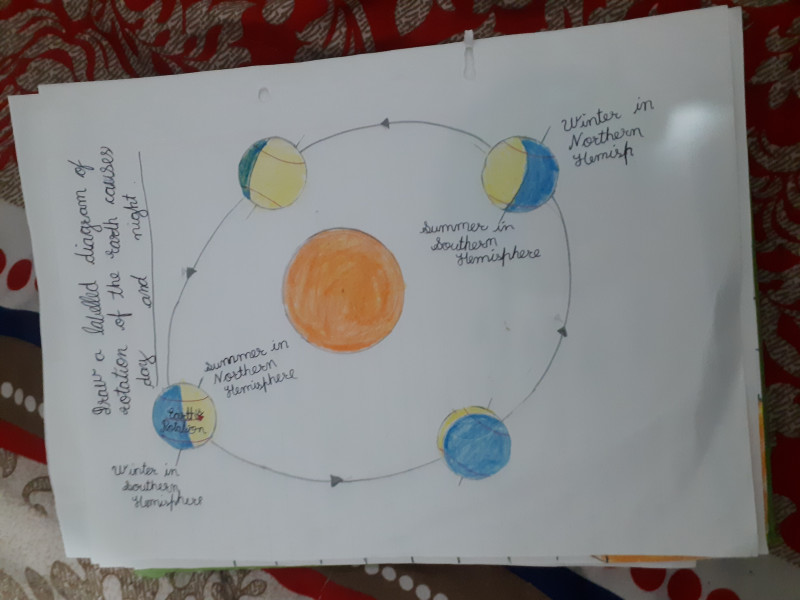 Draw a labelled diagram of
rotation of the earth causes
day and night
Winter in
Northern
Hemisp
Summer in
Southern
Hemisphere
Summer in
Northern
Hemisphere
Earth's
Rotation
Winter in
Southern
Hemisphere